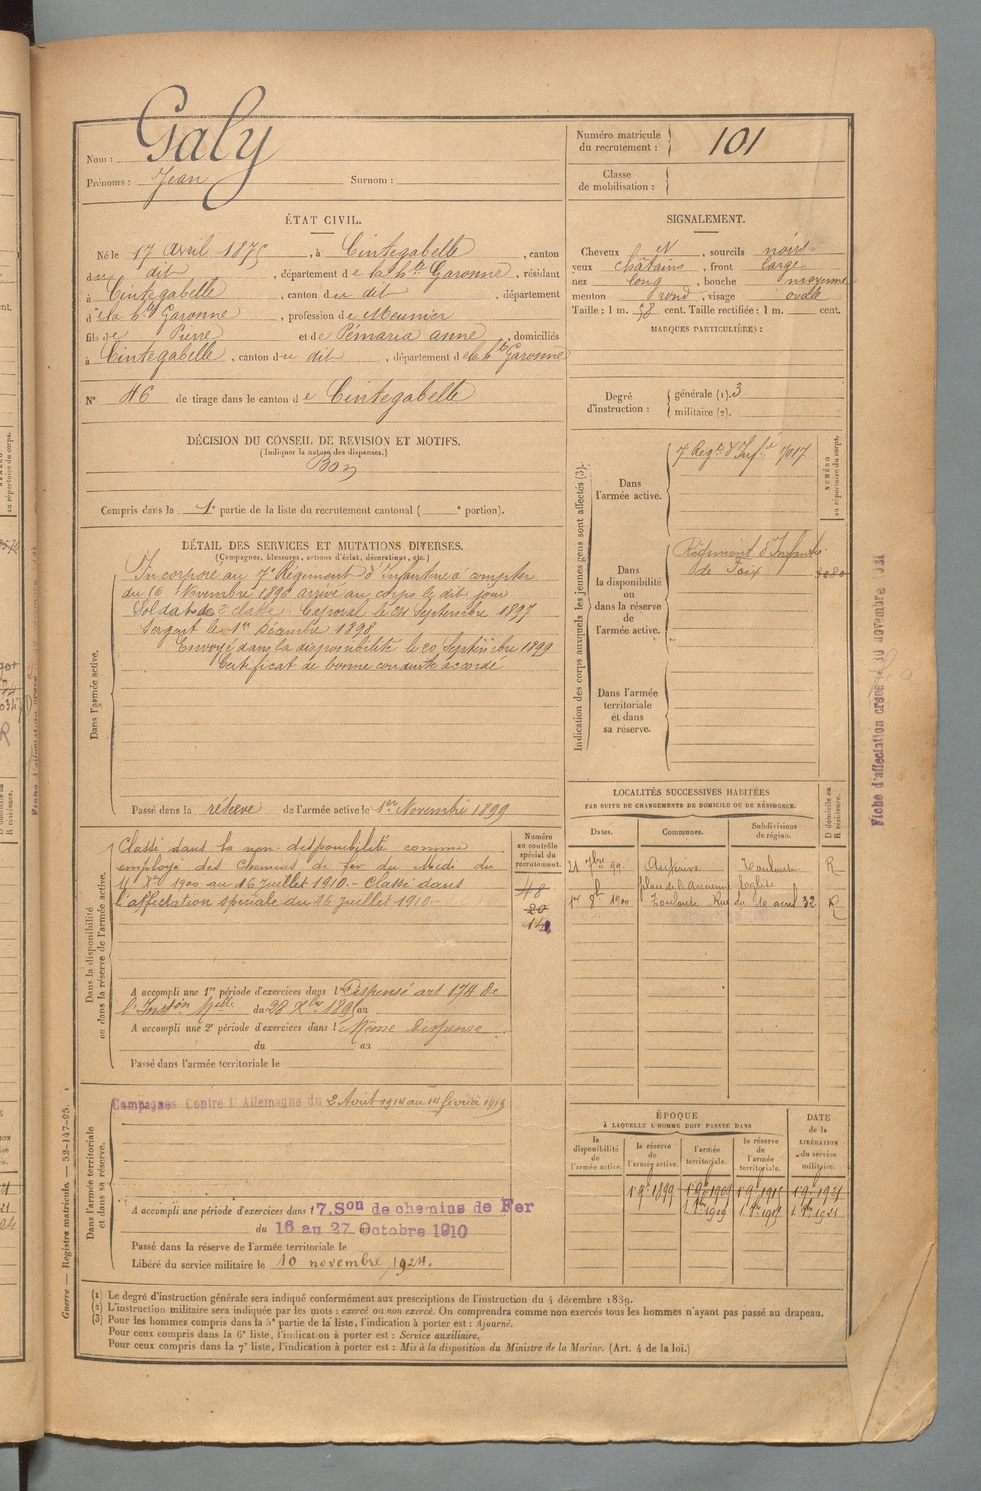 Nom : Galy
Prénoms : Jean Surnom :
Numéro matricule du recrutement : 101
Classe de mobilisation :
ÉTAT CIVIL.
Né le 17 avril 1875, à Cintegabelle, canton
du dit, département de la hte Garonne, résidant
à Cintegabelle, canton du dit, département
de la hte Garonne, profession de Meunier
fils de Pierre et de Pémaria anne, domiciliés
à Cintegabelle, canton du dit, département de la hte Garonne
N° 46 de tirage dans le canton de Cintegabelle
SIGNALEMENT.
Cheveux N, sourcils noirs
yeux châtains, front large
nez long, bouche moyenne
menton rond, visage ovale
Taille : 1 m. 58 cent. Taille rectifiée : 1 m. cent.
MARQUES PARTICULIÈRES :
Degré d'instruction : générale (1). 3
militaire (2).
DÉCISION DU CONSEIL DE REVISION ET MOTIFS.
(Indiquer la nature des dispenses.)
Bon
Compris dans la 1e partie de la liste du recrutement cantonal ( e portion).
DÉTAIL DES SERVICES ET MUTATIONS DIVERSES.
(Campagnes, blessures, actions d'éclat, décorations, etc.)
Dans l'armée active.
Incorporé au 7e Régiment d'Infanterie à compter
du 16 Novembre 1896 arrivé au corps le dit jour
Soldat de 2e classe. Caporal le 24 Septembre 1897
Sergent le 1er Décembre 1898
Envoyé dans la disponibilité le 20 Septembre 1899
Certificat de bonne conduite accordé
Passé dans la réserve de l'armée active le 1er Novembre 1899
Indication des corps auxquels les jeunes gens sont affectés (3).
NUMÉRO au répertoire du corps.
Dans l'armée active.
7e Régt d'Infie 7017
Dans la disponibilité ou dans la réserve de l'armée active.
Régiment d'Infanterie
de Foix
Dans l'armée territoriale et dans sa réserve.
Dans la disponibilité ou dans la réserve de l'armée active.
Classé dans la non disponibilité comme
employé des Chemins de fer du Midi du
4 Xbre 1900 au 16 Juillet 1910.- Classé dans
l'affectation spéciale du 16 juillet 1910-
Numéro au contrôle spécial du recrutement.
48
20
A accompli une 1re période d'exercices dans l Dispensé art 174 de
l'Inston Melle du 28 Xbre 1895 au
A accompli une 2e période d'exercices dans l Même Dispense
du au
Passé dans l'armée territoriale le
LOCALITÉS SUCCESSIVES HABITÉES
PAR SUITE DE CHANGEMENTS DE DOMICILE OU DE RÉSIDENCE.
Dates. Communes. Subdivisions de région. D domicile ou R résidence.
21 7bre 99. Auterive Toulouse R
place de l'Ancienne Eglise
1er 8bre 1900 Toulouse Rue du 10 avril 32 R
Dans l'armée territoriale et dans sa réserve.
Campagnes Contre l'Allemagne du 2 Août 1914 au 14 février 1919
A accompli une période d'exercices dans l 7.Son de chemins de Fer
du 16 au 27 Octobre 1910
Passé dans la réserve de l'armée territoriale le
Libéré du service militaire le 10 novembre 1924.
ÉPOQUE
À LAQUELLE L'HOMME DOIT PASSER DANS
la disponibilité de l'armée active.
la réserve de l'armée active.
l'armée territoriale.
la réserve de l'armée territoriale.
DATE de la LIBÉRATION du service militaire.
1 9bre 1899 1 9bre 1909 1 9bre 1915 1 9bre 1921
(1) Le degré d'instruction générale sera indiqué conformément aux prescriptions de l'instruction du 4 décembre 1889.
(2) L'instruction militaire sera indiquée par les mots : exercé ou non exercé. On comprendra comme non exercés tous les hommes n'ayant pas passé au drapeau.
(3) Pour les hommes compris dans la 5e partie de la liste, l'indication à porter est : Ajourné.
Pour ceux compris dans la 6e liste, l'indication à porter est : Service auxiliaire.
Pour ceux compris dans la 7e liste, l'indication à porter est : Mis à la disposition du Ministre de la Marine. (Art. 4 de la loi.)
Guerre — Registre matricule. — 52-147-95.
Fiche d'affectation créée le 10 novembre